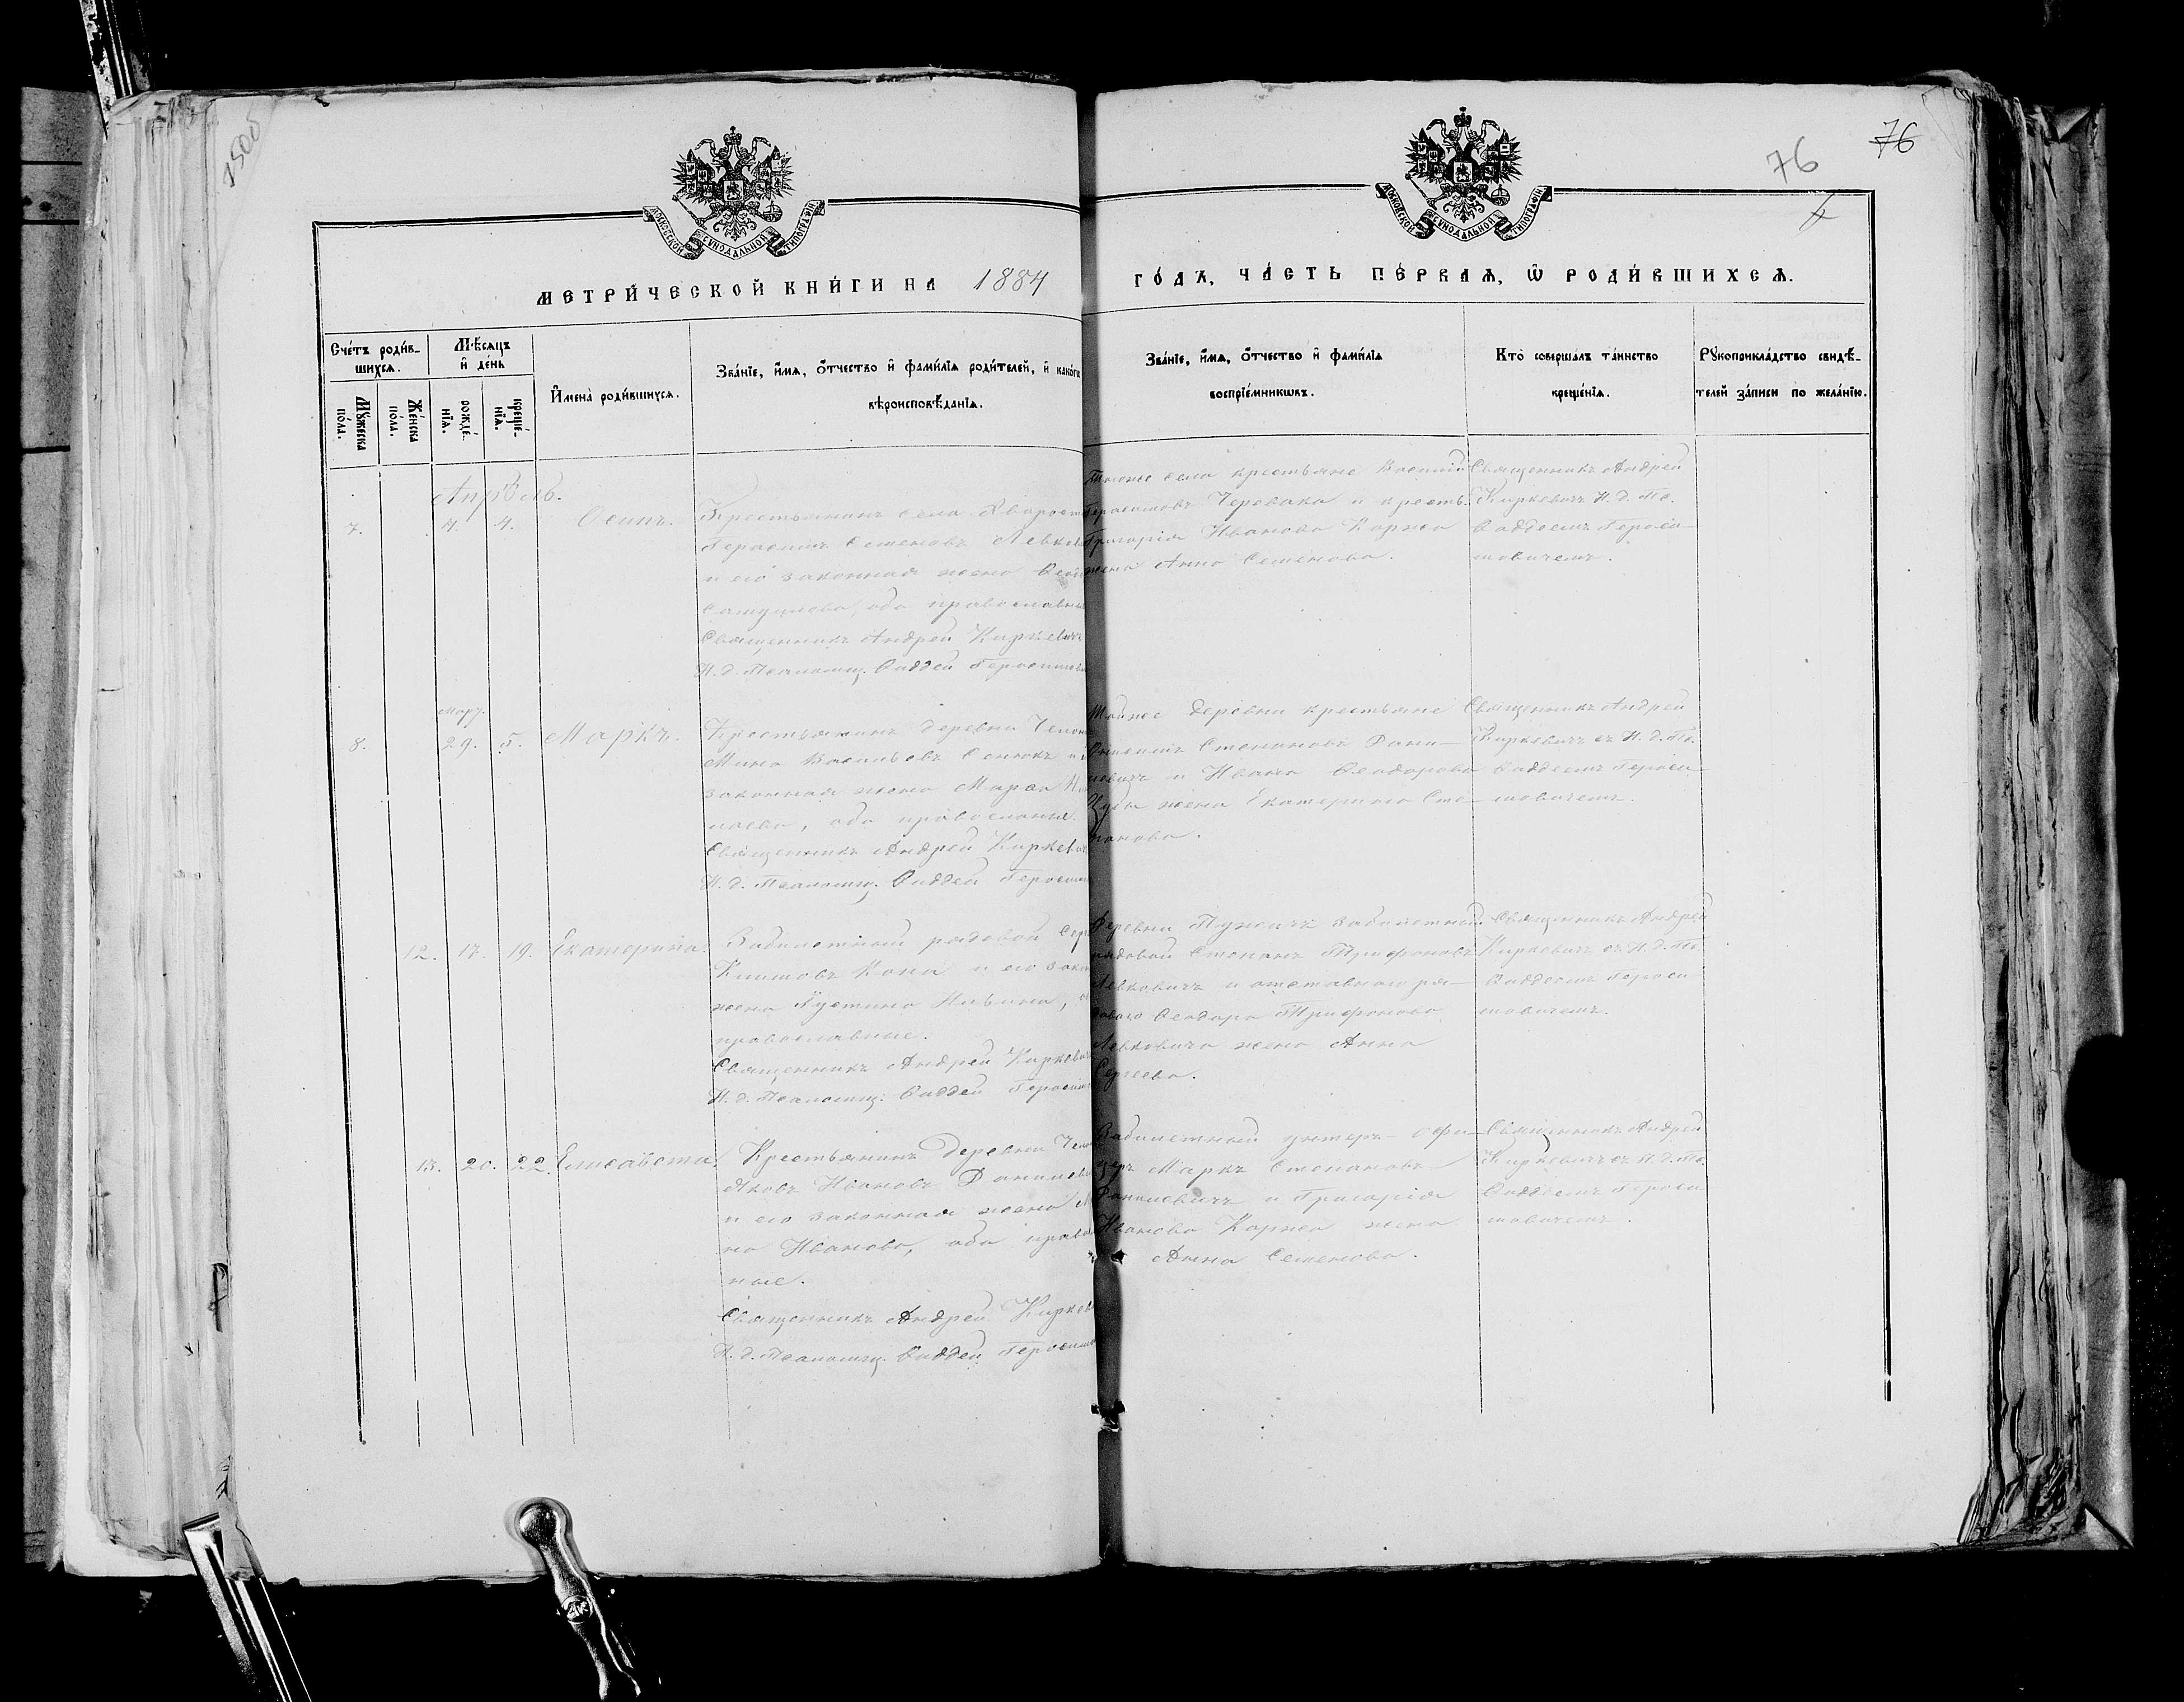 1500
76
76
МОСКОВСКОЙ СѴНОДАЛЬНОЙ ТИПОГРАФІИ
МОСКОВСКОЙ СѴНОДАЛЬНОЙ ТИПОГРАФІИ
МЕТРИ́ЧЕСКОЙ КНИ́ГИ НА 1884
ГО́ДЪ, ЧА́СТЬ ПЕ́РВАѦ, Ѿ РОДИ́ВШИХСѦ.
Сче́тъ роди́в-
шихсѧ.
Мѣ́сѧцъ
и҆ де́нь
Мꙋ́жеска
по́ла.
Же́нска
по́ла.
рожде́-
нїѧ.
креще́-
нїѧ.
И҆мена̀ роди́вшихсѧ.
Зва́нїе, и҆́мѧ, ѻ҆́тчество и҆ фами́лїѧ роди́телей, и҆ како́гѡ
вѣроисповѣ́данїѧ.
Зва́нїе, и҆́мѧ, ѻ҆́тчество и҆ фами́лїѧ
воспрїе́мникѡвъ.
Кто̀ соверша́лъ та́инство
креще́нїѧ.
Рꙋкоприкла́дство свидѣ́-
телей за́писи по жела́нїю.
Апрѣль.
7. 4. 4. Осипъ.
Крестьянинъ села Хворост
Герасимъ Семеновъ Левков
и его законная жена
Самуилова, оба православны
Священникъ Андрей Киркевичъ
И. д. Псаломщ. Фаддей Герасимов
Тогоже села крестьяне Василій
Герасимовъ Черевака и кресть.
Григорія Иванова Коржа
жена Анна Семенова.
Священникъ Андрей
Киркевичъ И. д. Пс.
Фаддеемъ Гераси-
мовичемъ.
Март.
8. 29. 5. Маркъ.
Крестьянинъ деревни
Мина Васильевъ Сенюкъ и
законная жена Марѳа
лаева, оба православные.
Священникъ Андрей Киркевич
И. д. Псаломщ. Фаддей Герасим
Тойже деревни крестьяне
Онисимъ Степановъ Дани-
левичъ и Ивана Ѳеодорова
жена Екатерина Сте-
панова.
Священникъ Андрей
Киркевичъ съ И. д. Пс.
Фаддеемъ Гераси-
мовичемъ.
12. 17. 19. Екатерина.
Забилетный рядовой Сер
Климовъ Кона и его зако
жена Іустина Ильина,
православные.
Священникъ Андрей Киркевич
И. д. Псаломщ. Фаддей Герасим
Деревни Пужичъ забилетный
рядовой Степанъ Трифоновъ
Левковичъ и отставнаго ря-
доваго Ѳеодора Трифонова
Левковича жена Анна
Сергеева.
Священникъ Андрей
Киркевичъ съ И. д. Пс.
Фаддеемъ Гераси-
мовичемъ.
13. 20. 22. Елисавета.
Крестьянинъ деревни
Яковъ Ивановъ Данилев
и его законная жена
на Иванова, оба право
ные.
Священникъ Андрей Киркев
И. д. Псаломщ. Фаддей Герасим
Забилетный унтеръ-офи-
церъ Маркъ Степановъ
Данилевичъ и Григорія
Иванова Коржа жена
Анна Семенова.
Священникъ Андрей
Киркевичъ съ И. д. Пс.
Фаддеемъ Гераси-
мовичемъ.